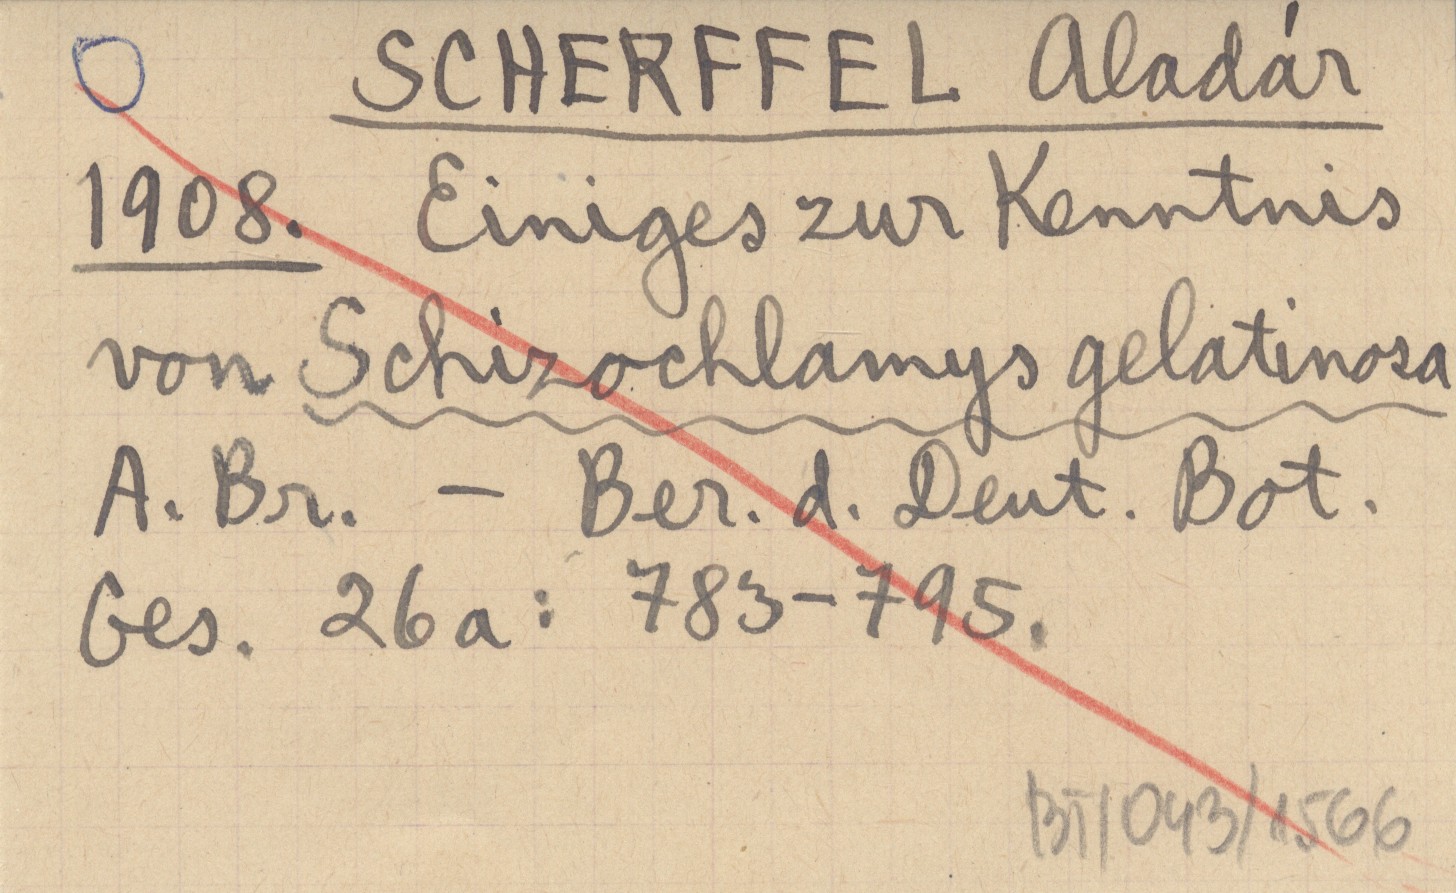 SCHERFFEL Aladár
1908. Einiges zur Kenntnis
von Schizochlamys gelatinosa
A. Br. – Ber. d. Deut. Bot.
Ges. 26a: 783–795.
BT/043/1566